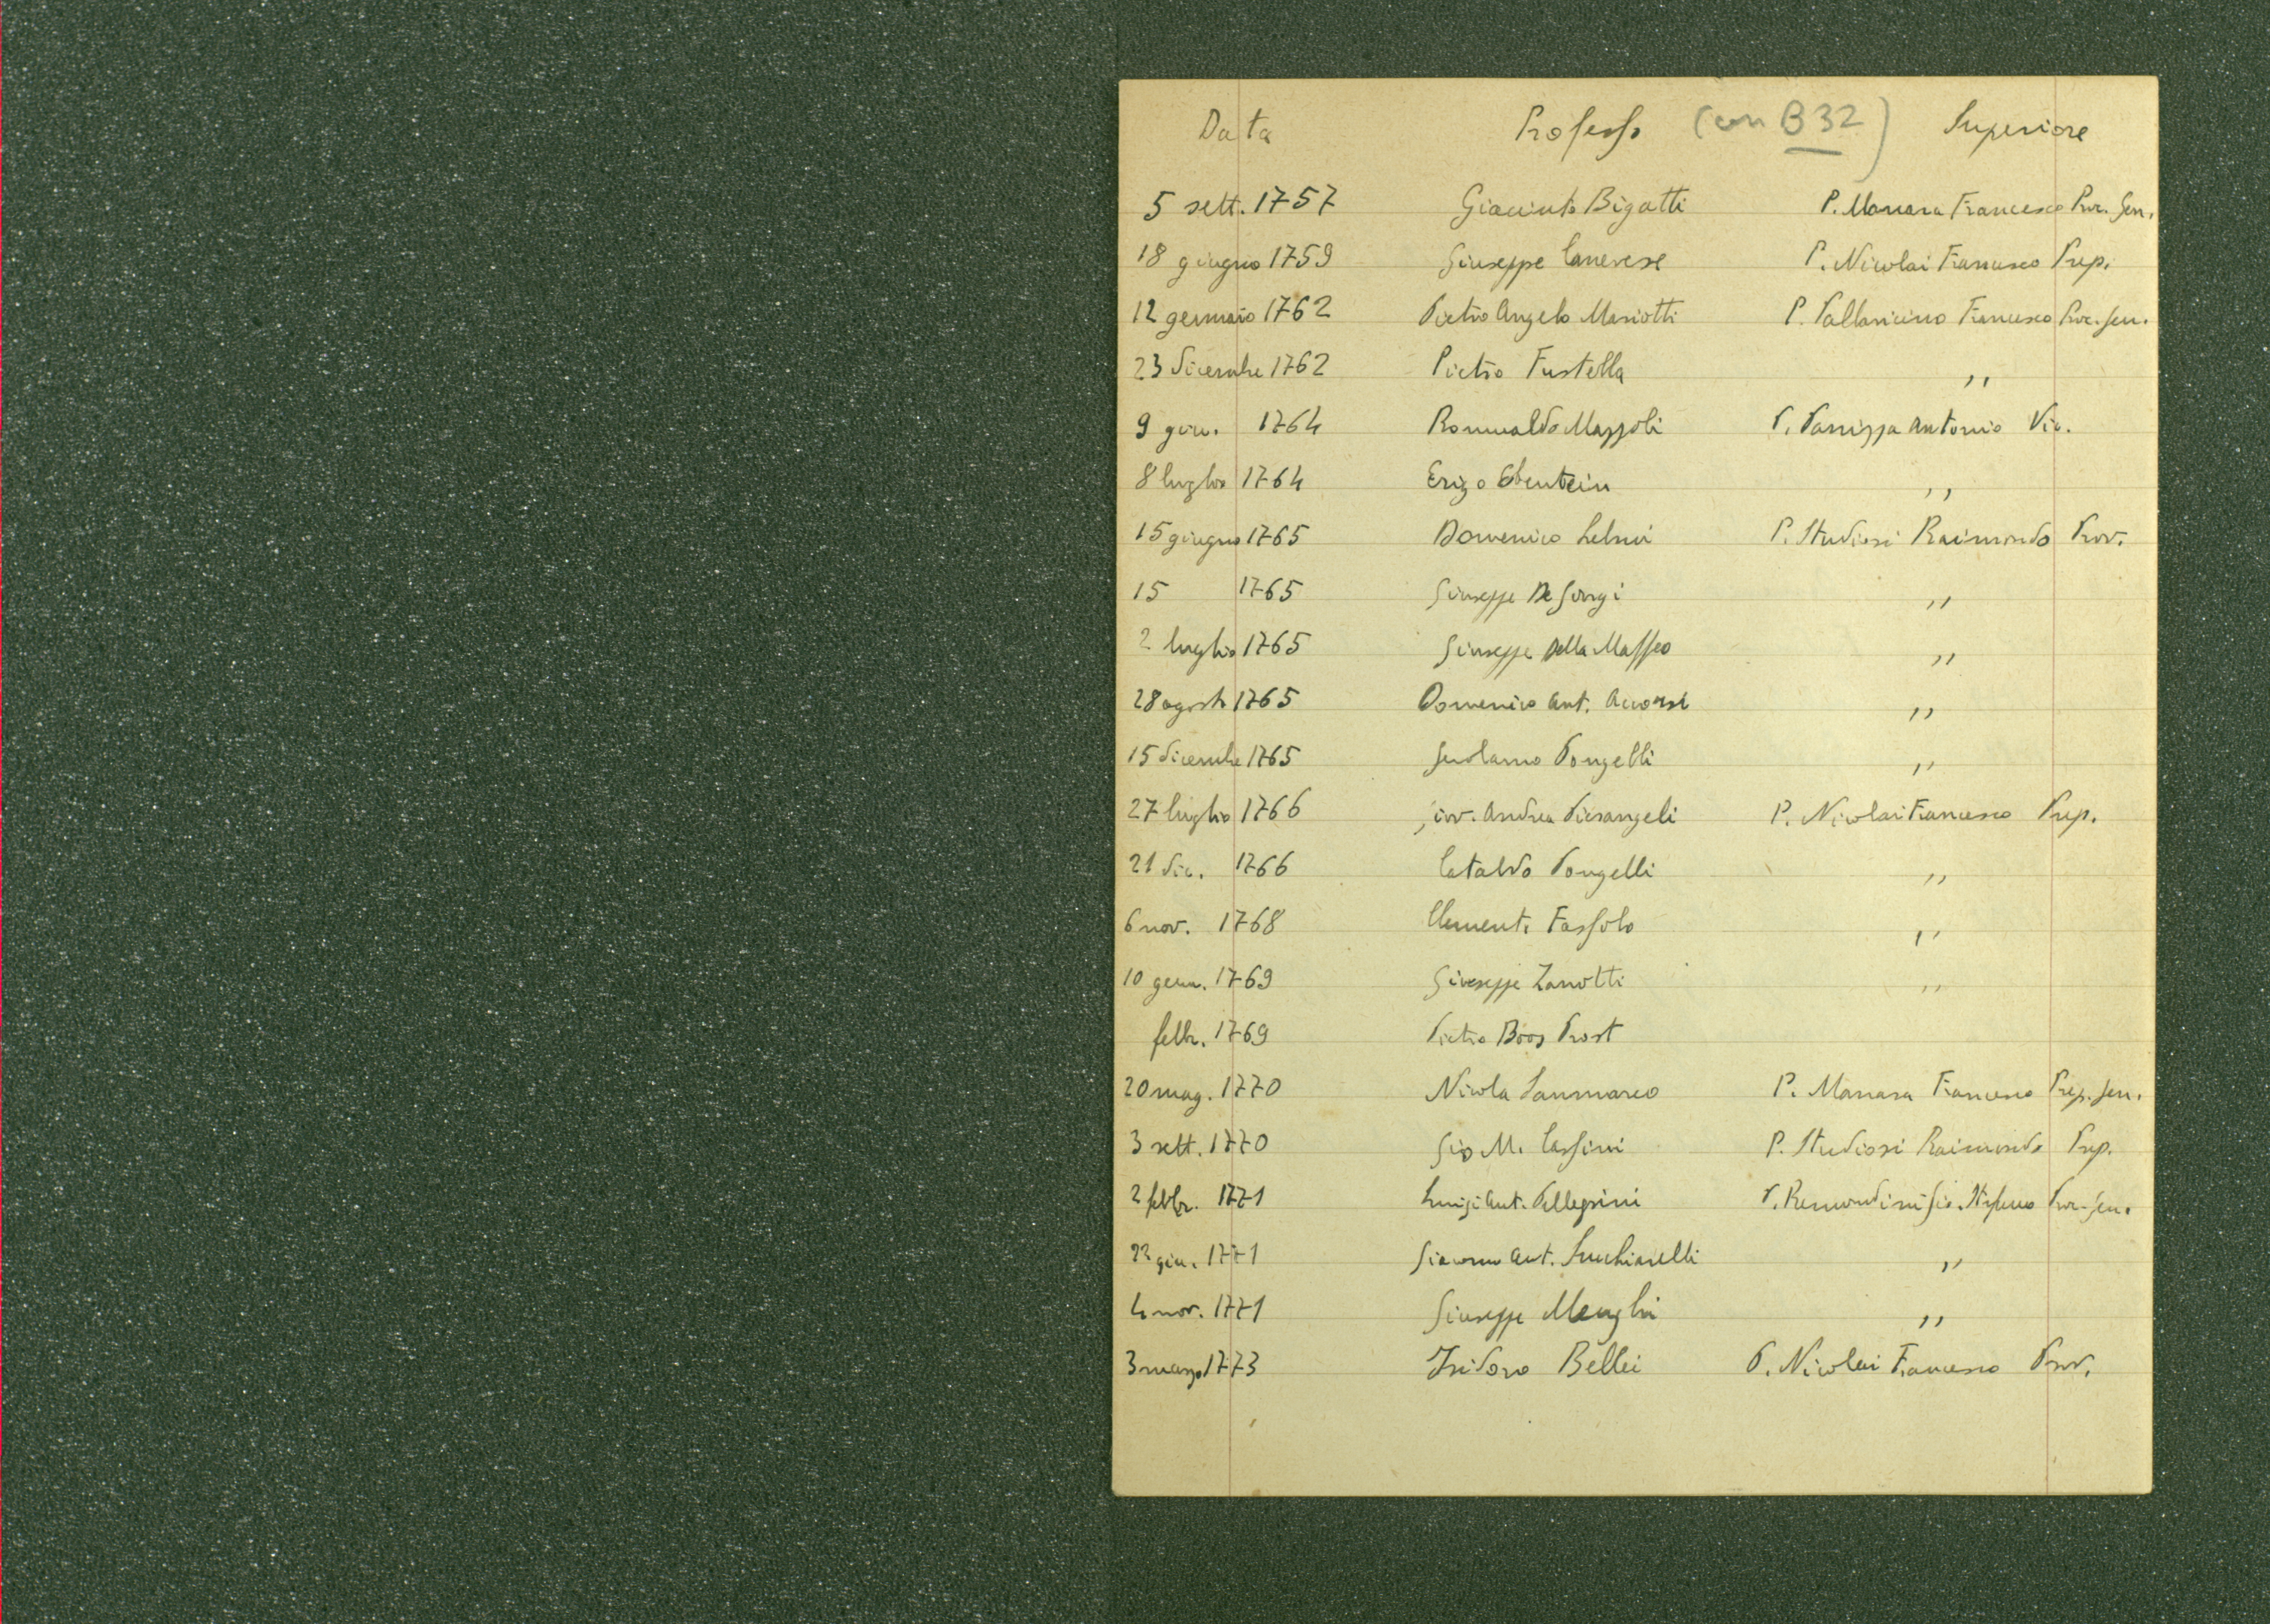 Data Professo (con B 32) Superiore
5 sett. 1757 Giacinto Bigatti P. Manara Francesco Proc. Gen.
18 giugno 1759 Giuseppe Canevese P. Nicolai Francesco Prep.
12 gennaio 1762 Pietro Angelo Mariotti P. Pallavicino Francesco Proc. Gen.
23 dicembre 1762 Pietro Fustella ,,
9 giu. 1764 Romualdo Mazzoli P. Panizza Antonio Vic.
8 luglio 1764 Erizo ,,
15 giugno 1765 Domenico Lelmi P. Studiosi Raimondo Prov.
15 1765 Giuseppe De Giorgi ,,
2 luglio 1765 Giuseppe Della Maffeo ,,
28 agosto 1765 Domenico Ant. Accorsi ,,
15 dicembre 1765 Girolamo Pongelli ,,
27 luglio 1766 Giov. Andrea Pierangeli P. Nicolai Francesco Prep.
21 dic. 1766 Cataldo Pongelli ,,
6 nov. 1768 Clemente Fassolo ,,
10 genn. 1769 Giuseppe Zanotti ,,
febbr. 1769 Pietro Prost
20 mag. 1770 Nicola Sanmarco P. Manara Francesco Prep. Gen.
3 sett. 1770 Gio M. Cassini P. Studiosi Raimondo Prep.
2 febbr. 1771 Luigi Ant. Pellegrini P. Remondini Gio. Stefano Proc. Gen.
22 giu. 1771 Giacomo Ant. Succhiarelli ,,
4 nov. 1771 Giuseppe Menghi ,,
3 marzo 1773 Isidoro Bellei P. Nicolai Francesco Prov.